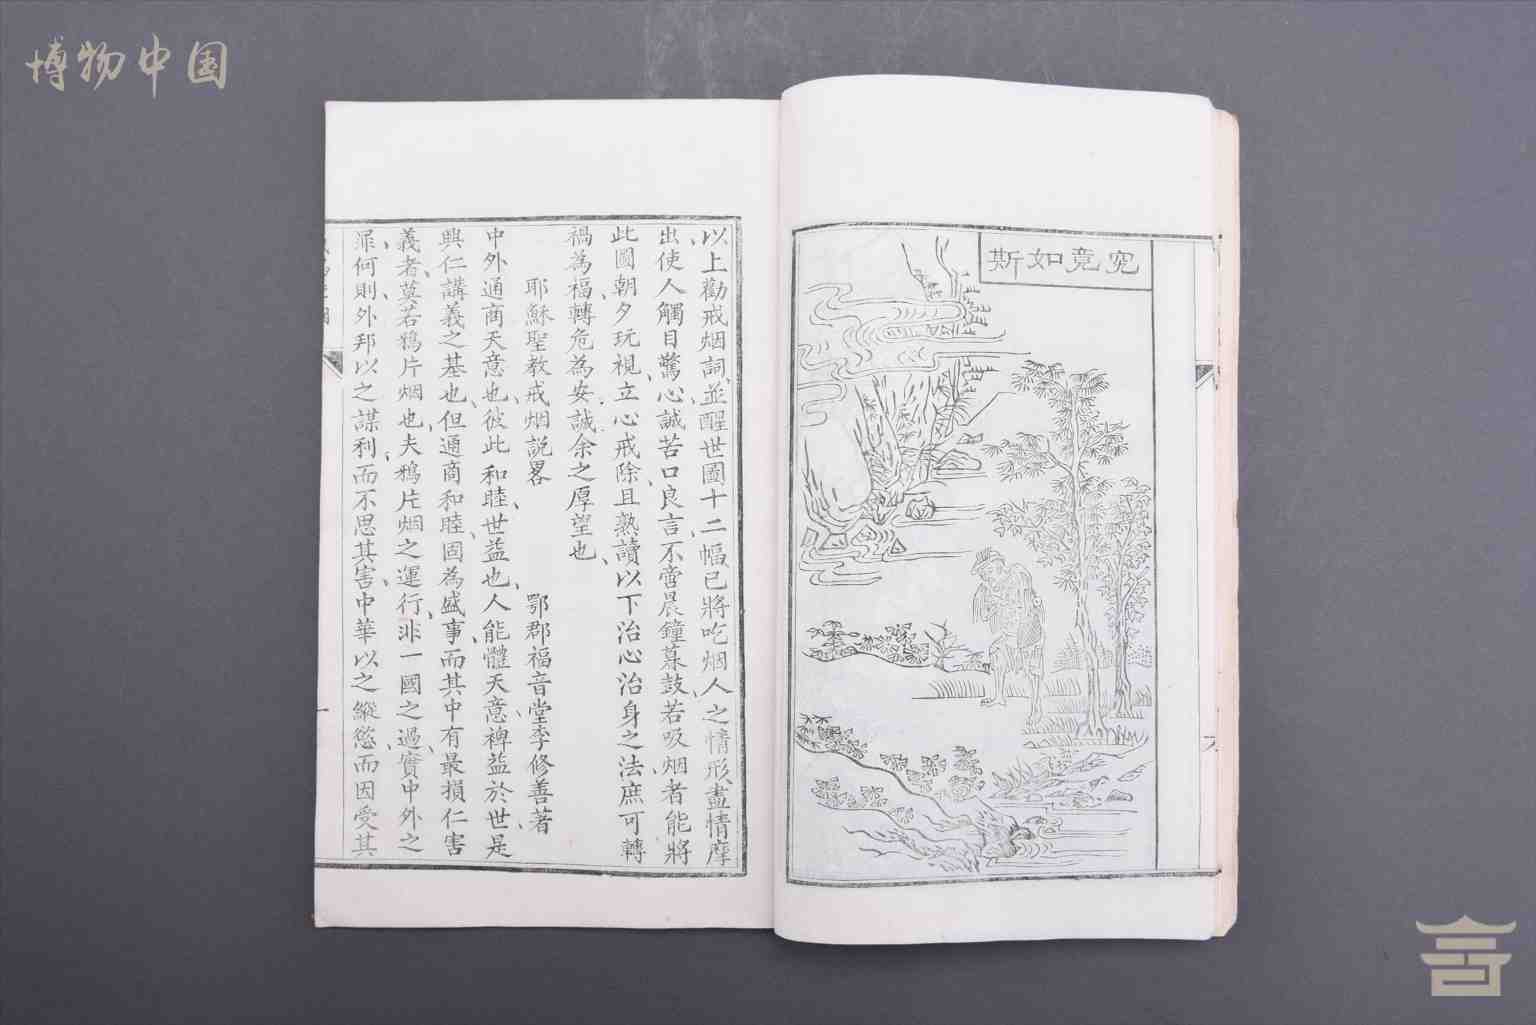 博物中国
究竟如斯
以上勸戒烟詞並醒世圖十二幅已將吃烟人之情形盡情摩
出使人觸目驚心誠苦口良言不啻晨鐘暮鼓若吸烟者能將
此圖朝夕玩視立心戒除且熟讀以下治心治身之法庶可轉
禍為福轉危為安誠余之厚望也
耶穌聖教戒烟説畧 鄂郡福音堂李修善著
中外通商天意也彼此和睦世益也人能體天意裨益於世是
興仁講義之基也但通商和睦固為盛事而其中有最損仁害
義者莫若鴉片烟也夫鴉片烟之運行非一國之過實中外之
罪何則外邦以之謀利而不思其害中華以之縱慾而因受其